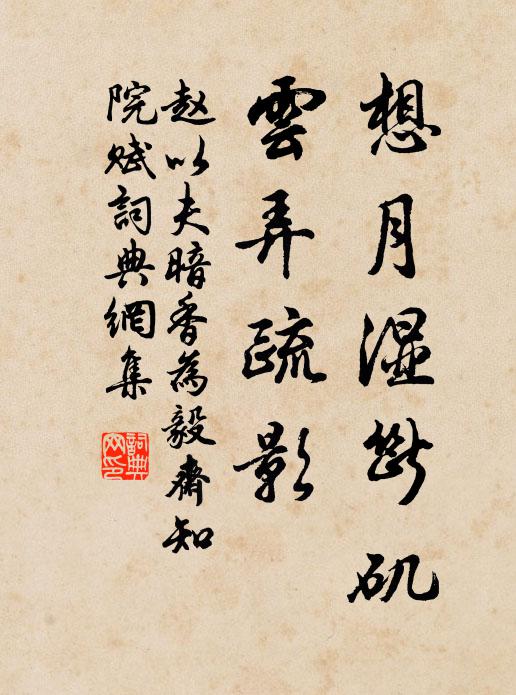 想月湿断矶
雲弄疏影
赵以夫暗香為毅斋知
院赋詞典網集
詞典網印